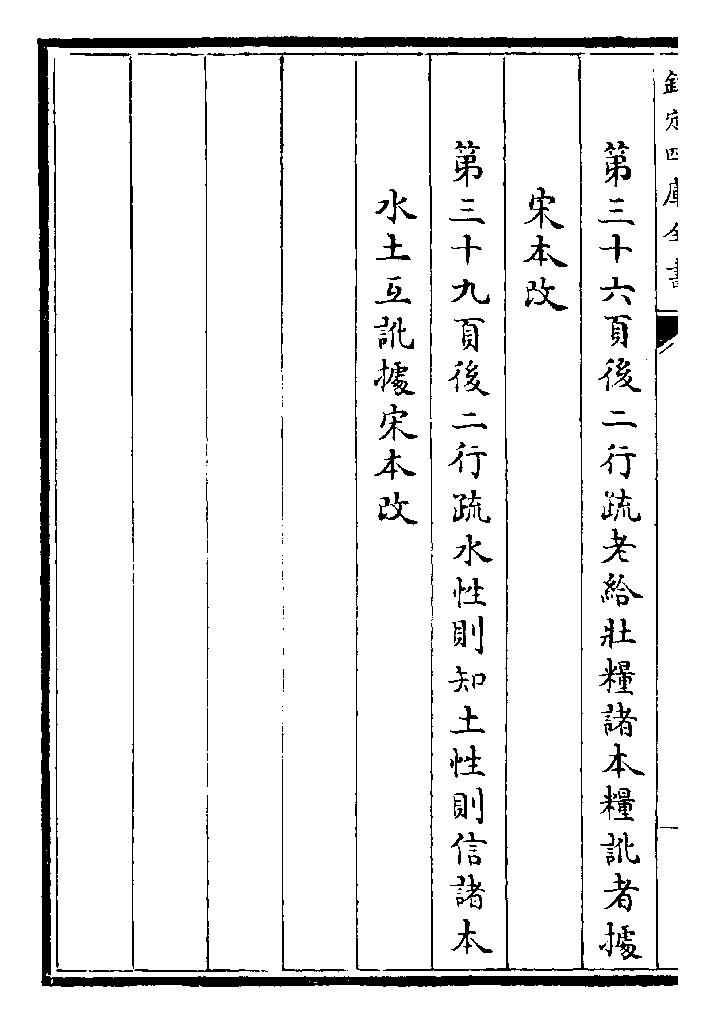 欽定四庫全書
第三十六頁後二行疏老給壯糧諸本糧訛者據
宋本改
第三十九頁後二行疏水性則知土性則信諸本
水土互訛據宋本改